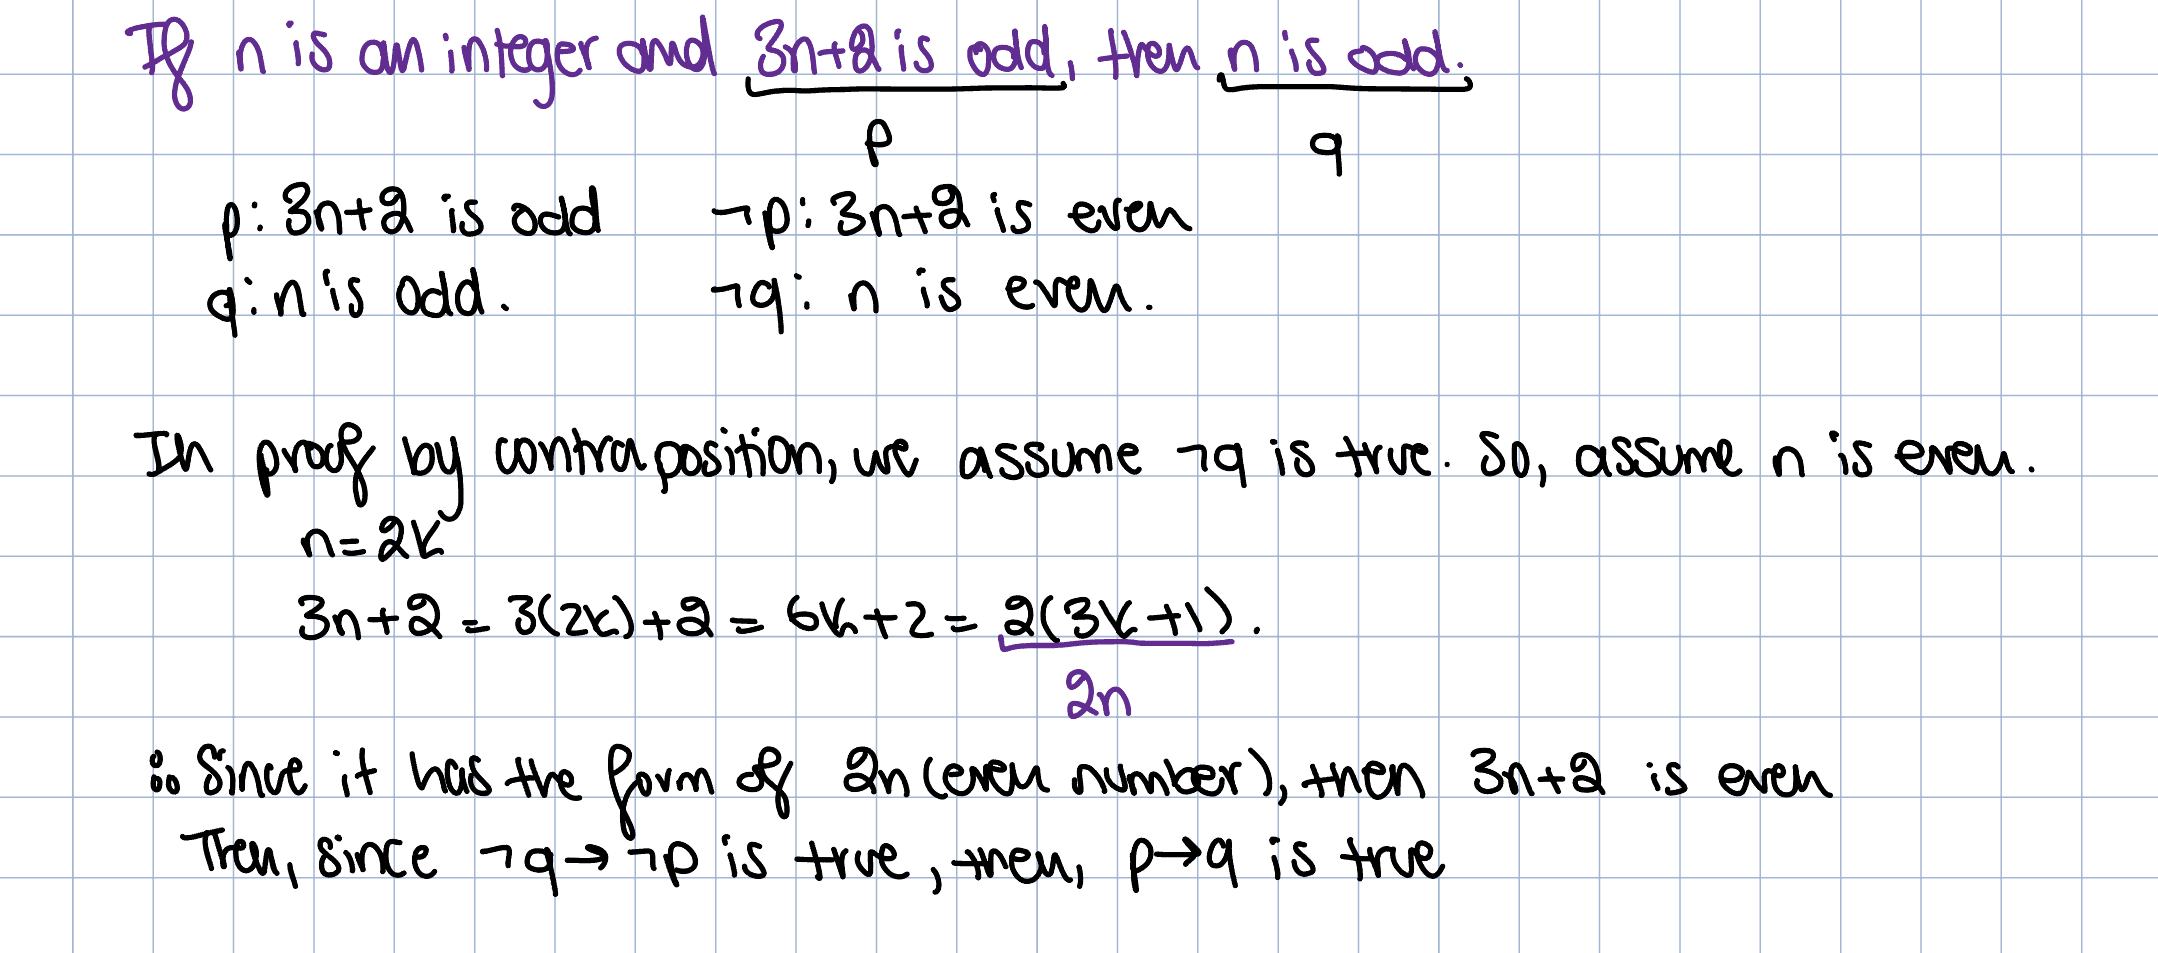 If n is an integer and 3n+2 is odd, then n is odd.
p q
p: 3n+2 is odd ¬p: 3n+2 is even
q: n is odd. ¬q: n is even.
In proof by contraposition, we assume ¬q is true. So, assume n is even.
n=2k
3n+2 = 3(2k)+2 = 6k+2 = 2(3k+1).
2n
∴ Since it has the form of 2n (even number), then 3n+2 is even
Then, since ¬q→¬p is true, then, p→q is true